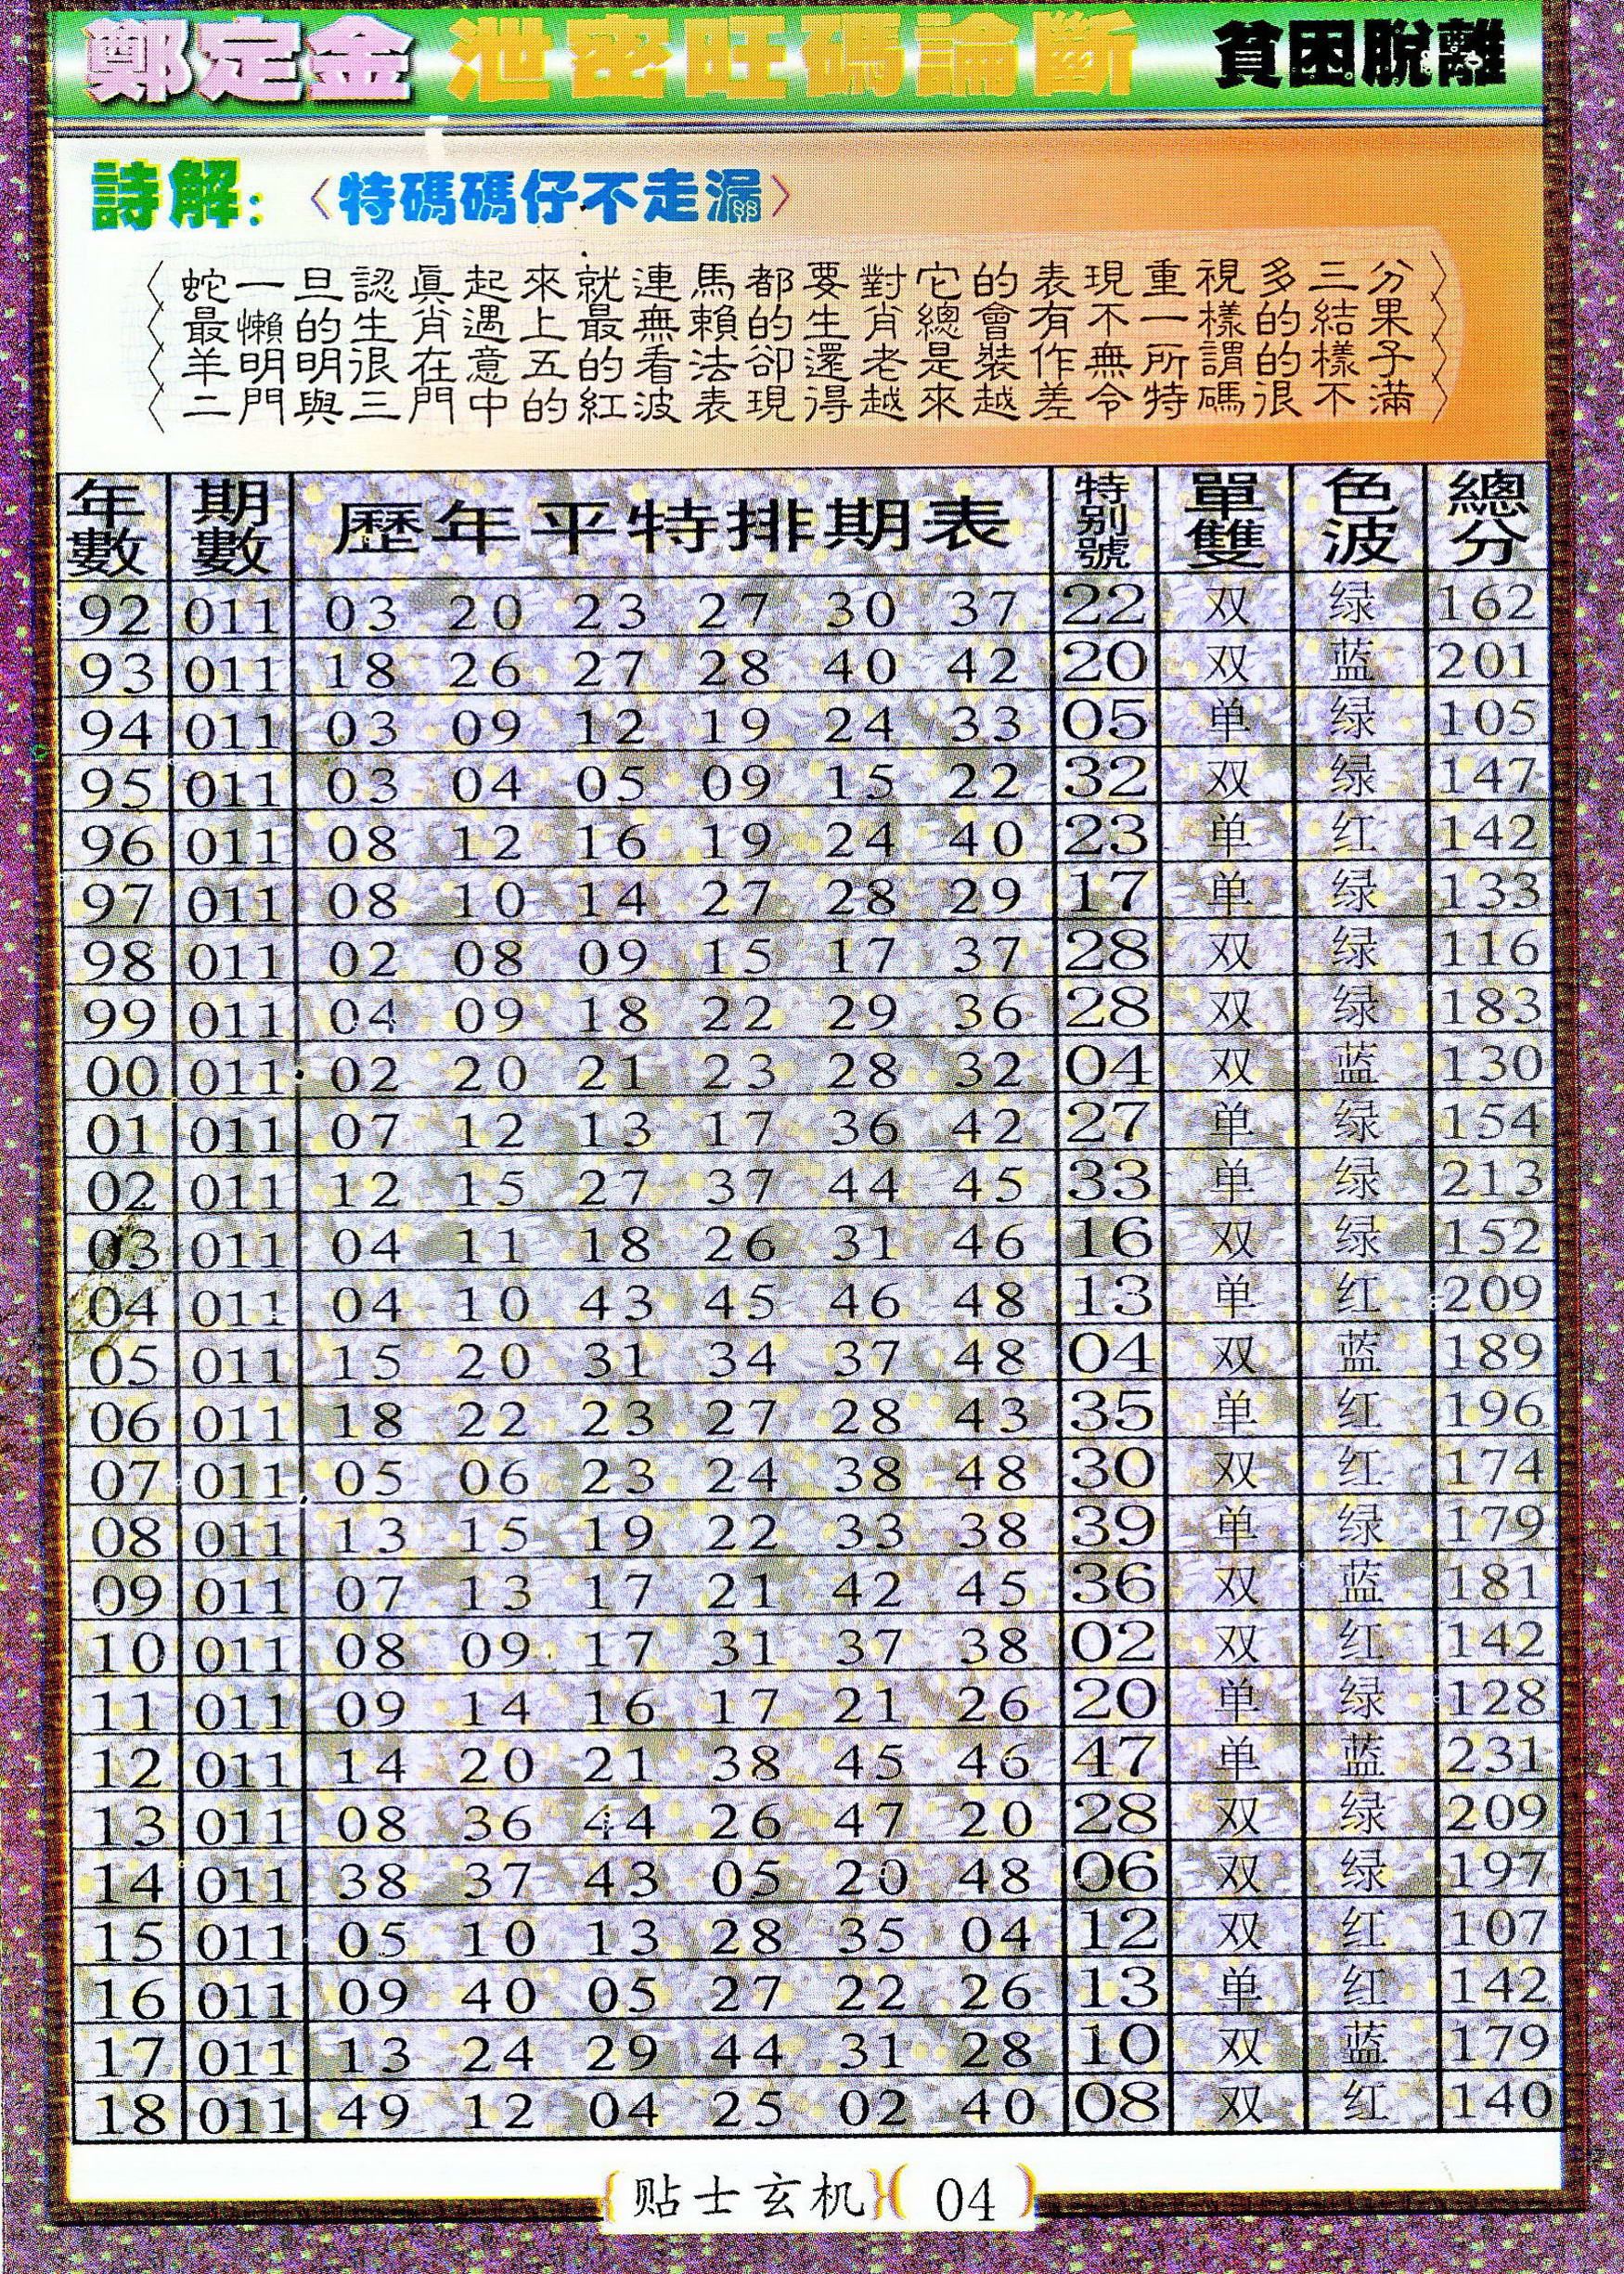 鄭定金 泄密旺碼論斷 貧困脫離
詩解：〈特碼碼仔不走漏〉
〈蛇一旦認眞起來就連馬都要對它的表現重視多三分〉
〈最懶的生肖遇上最無賴的生肖總會有不一樣的結果〉
〈羊明明很在意五的看法卻還老是裝作無所謂的樣子〉
〈二門與三門中的紅波表現得越來越差令特碼很不滿〉
年數 期數 歷年平特排期表 特别號 單雙 色波 總分
92 011 03 20 23 27 30 37 22 双 绿 162
93 011 18 26 27 28 40 42 20 双 蓝 201
94 011 03 09 12 19 24 33 05 单 绿 105
95 011 03 04 05 09 15 22 32 双 绿 147
96 011 08 12 16 19 24 40 23 单 红 142
97 011 08 10 14 27 28 29 17 单 绿 133
98 011 02 08 09 15 17 37 28 双 绿 116
99 011 04 09 18 22 29 36 28 双 绿 183
00 011 02 20 21 23 28 32 04 双 蓝 130
01 011 07 12 13 17 36 42 27 单 绿 154
02 011 12 15 27 37 44 45 33 单 绿 213
03 011 04 11 18 26 31 46 16 双 绿 152
04 011 04 10 43 45 46 48 13 单 红 209
05 011 15 20 31 34 37 48 04 双 蓝 189
06 011 18 22 23 27 28 43 35 单 红 196
07 011 05 06 23 24 38 48 30 双 红 174
08 011 13 15 19 22 33 38 39 单 绿 179
09 011 07 13 17 21 42 45 36 双 蓝 181
10 011 08 09 17 31 37 38 02 双 红 142
11 011 09 14 16 17 21 26 20 单 绿 128
12 011 14 20 21 38 45 46 47 单 蓝 231
13 011 08 36 44 26 47 20 28 双 绿 209
14 011 38 37 43 05 20 48 06 双 绿 197
15 011 05 10 13 28 35 04 12 双 红 107
16 011 09 40 05 27 22 26 13 单 红 142
17 011 13 24 29 44 31 28 10 双 蓝 179
18 011 49 12 04 25 02 40 08 双 红 140
{贴士玄机}(04)